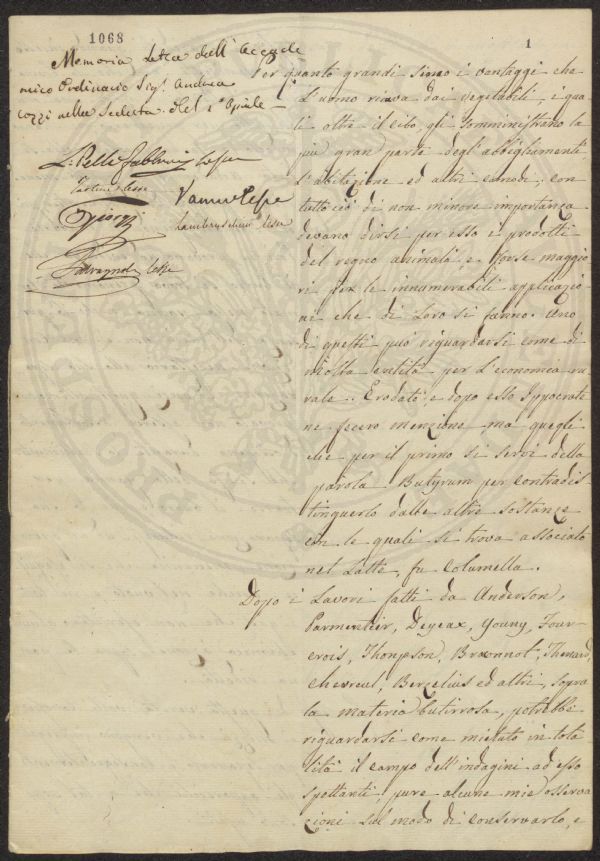 1068
1
Memoria letta dall' Accade
mico Ordinario Sig.r Andrea
Cozzi nella Seduta del 1° Aprile
Per quanto grandi sieno i vantaggi che
L'uomo ricava dai vegetabili, i qua
li oltre il cibo, gli somministrano la
più gran parte degl'abbigliamenti
L'abitazione ed altri comodi, con
tutto ciò di non minore importanza
devono dirsi per esso i prodotti
del regno animale, e forse maggio
ri per le innumerabili applicazio
ni che di Loro si fanno. Uno
di questi può riguardarsi come di
molta utilità per L'economia ru
rale. Erodato, e dopo esso Ippocrate
ne fecero menzione ma quegli
che per il primo si servì della
parola Butyrum per contradis
tinguerlo dalle altre sostanze
con le quali si trova associato
nel Latte, fu Columella.
Dopo i Lavori fatti da Anderson,
Parmentier, Deyeax, Young, Four
crois, Thompson, Braonnot, Thenard,
Chevreul, Berzelius ed altri, sopra
la materia butirrosa, potrebbe
riguardarsi come mietuto in tota
lità il campo dell'indagini ad esso
spettanti pure alcune mie osserva
zioni sul modo di conservarlo, e